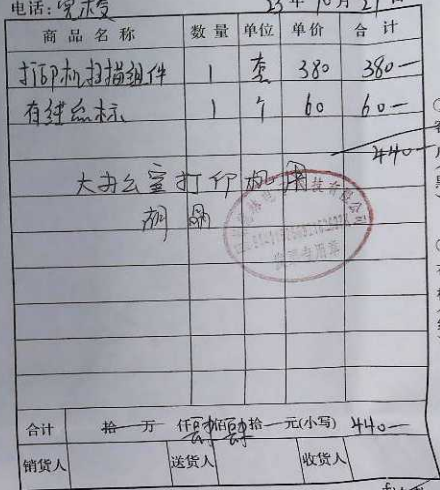 电话:
23年10月27日
商品名称 数量 单位 单价 合计
打印机扫描组件 1 套 380 380—
有线鼠标 1 个 60 60—
440—
大办公室打印机用
发票专用章
合计 拾 万 仟 肆佰 肆拾 元(小写) 440—
销货人 送货人 收货人